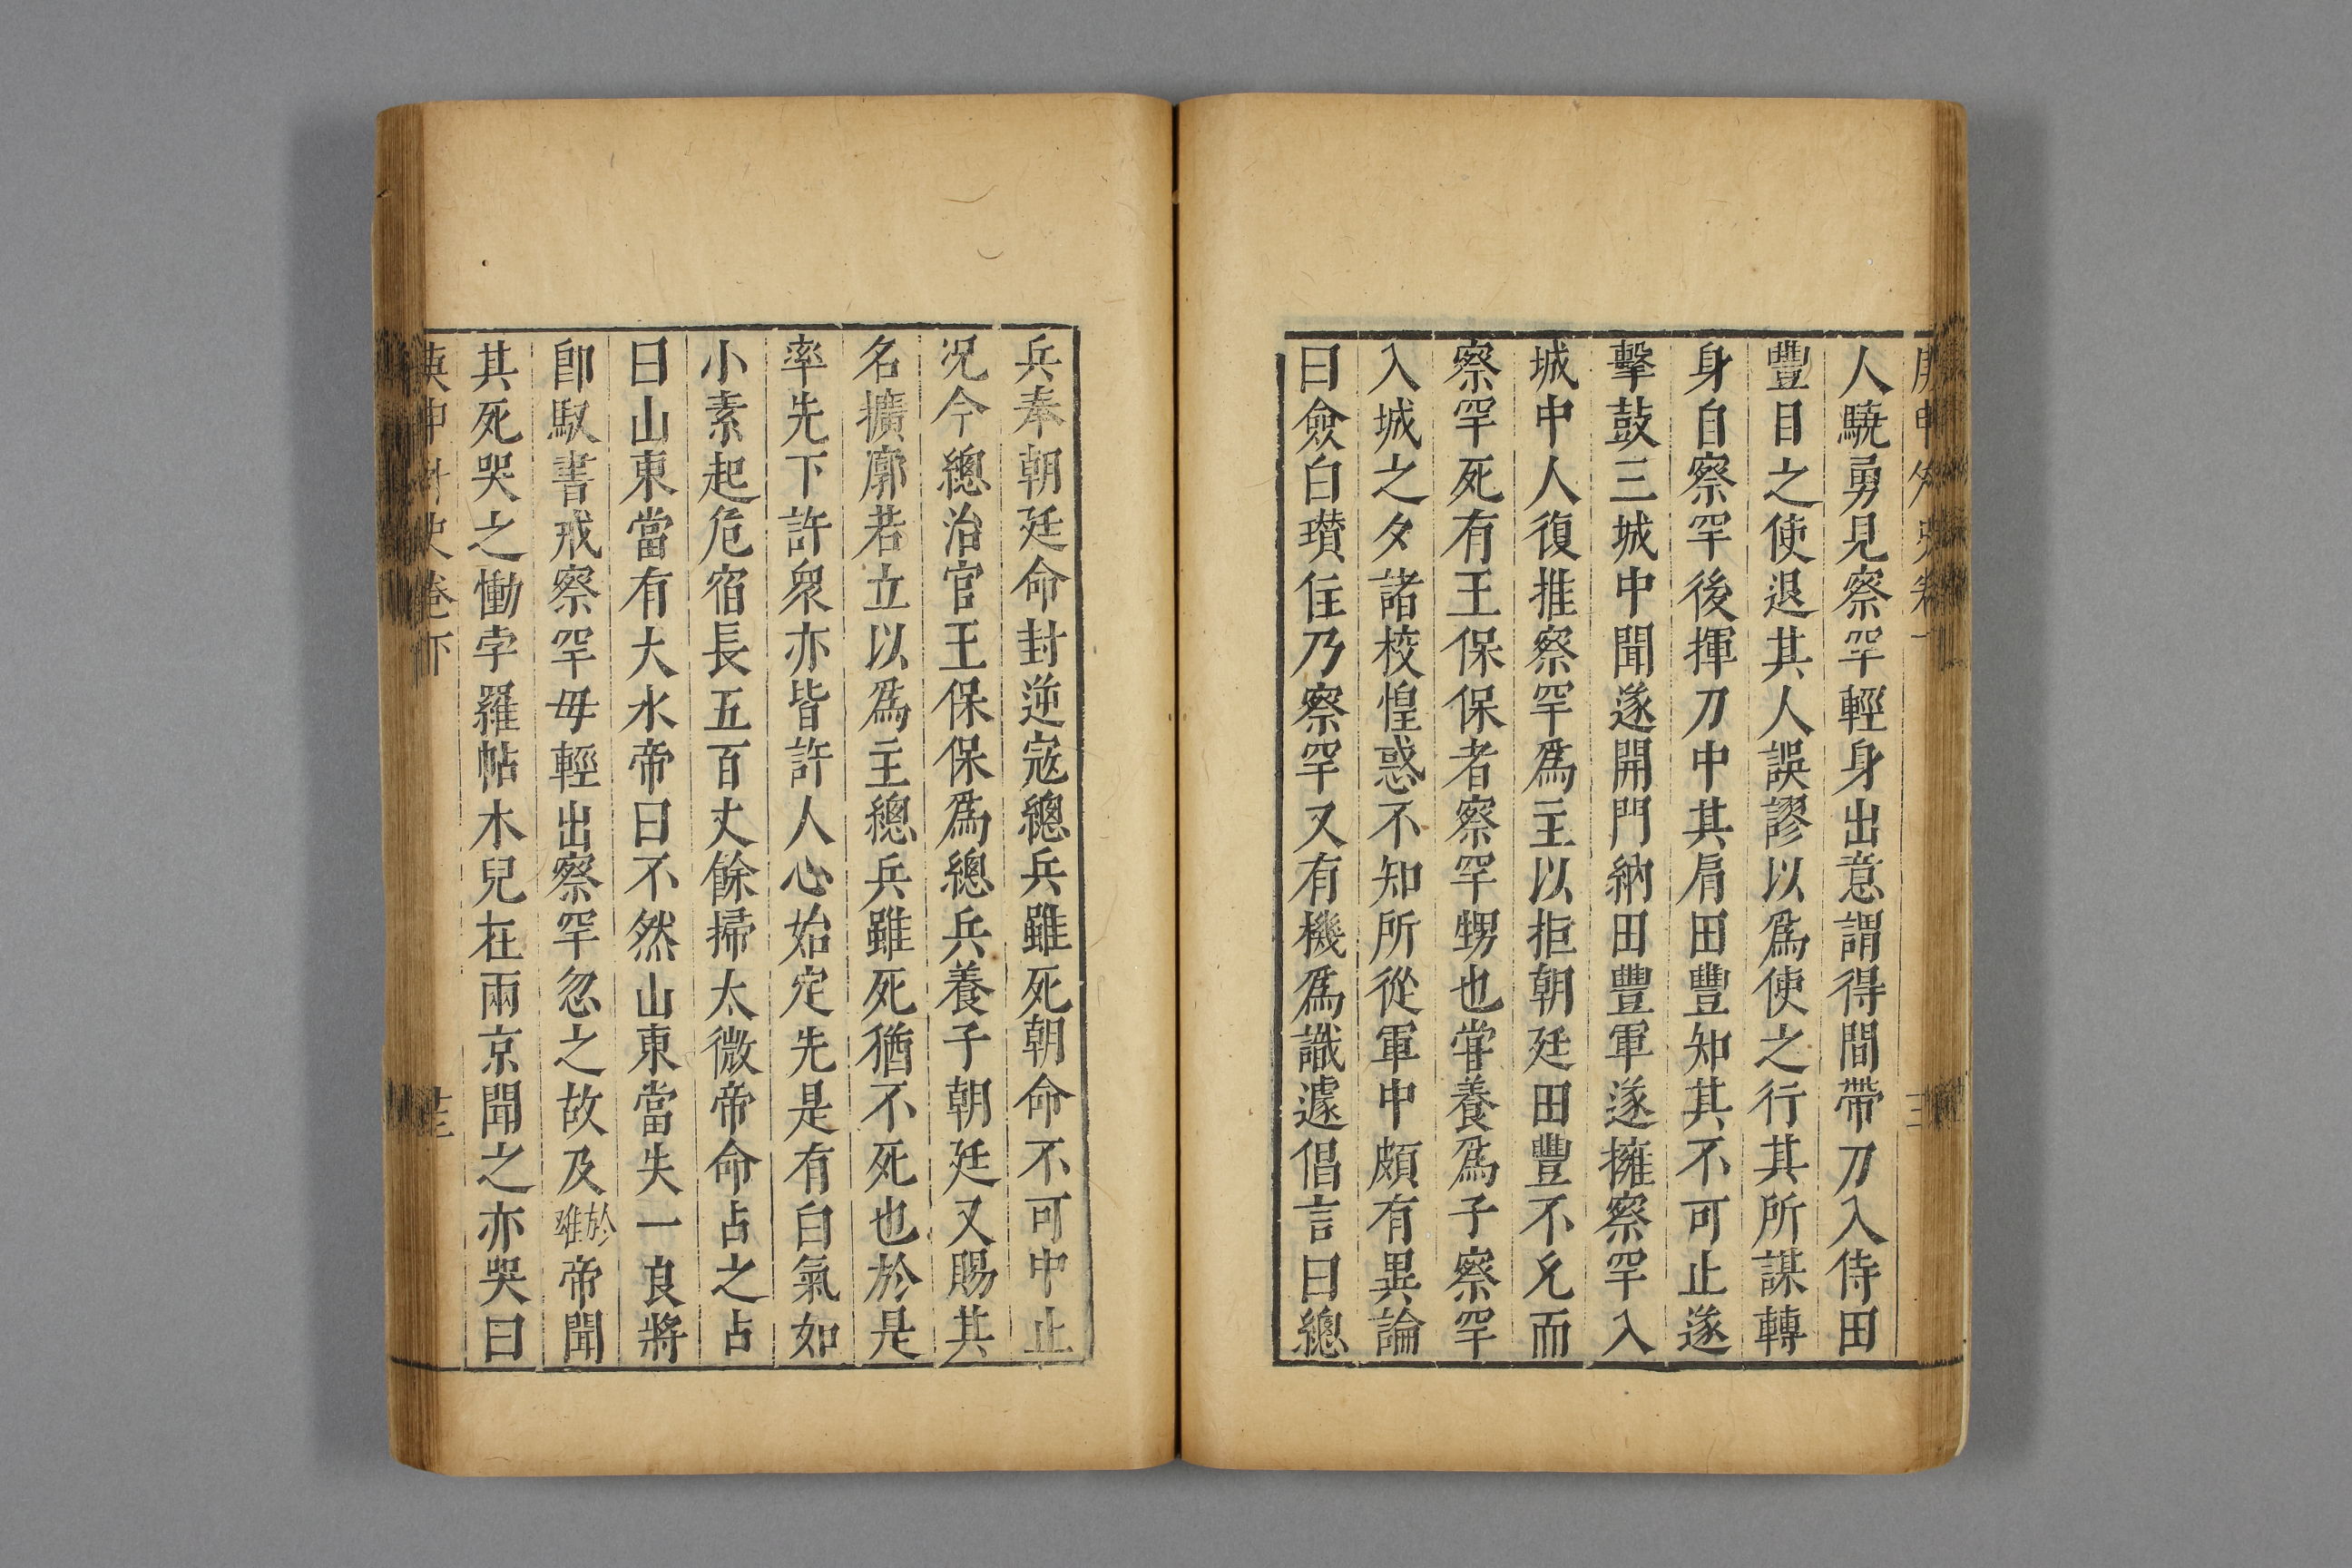 人驍勇見察罕輕身出意謂得間帶刀入侍田
豐目之使退其人誤謬以爲使之行其所謀轉
身自察罕後揮刀中其肩田豐知其不可止遂
擊鼓三城中聞遂開門納田豐軍遂擁察罕入
城中人復推察罕爲主以拒朝廷田豐不允而
察罕死有王保保者察罕甥也嘗養爲子察罕
入城之夕諸校惶惑不知所從軍中頗有異論
曰僉白瓚住乃察罕又有機爲識遽倡言曰總
兵奉朝廷命封逆寇總兵雖死朝命不可中止
况今總治官王保保爲總兵養子朝廷又賜其
名擴廓若立以爲主總兵雖死猶不死也於是
率先下許衆亦皆許人心始定先是有白氣如
小素起危宿長五百丈餘掃太微帝命占之占
曰山東當有大水帝曰不然山東當失一良將
卽馭書戒察罕毋輕出察罕忽之故及於難帝聞
其死哭之慟孛羅帖木兒在兩京聞之亦哭曰
史卷下